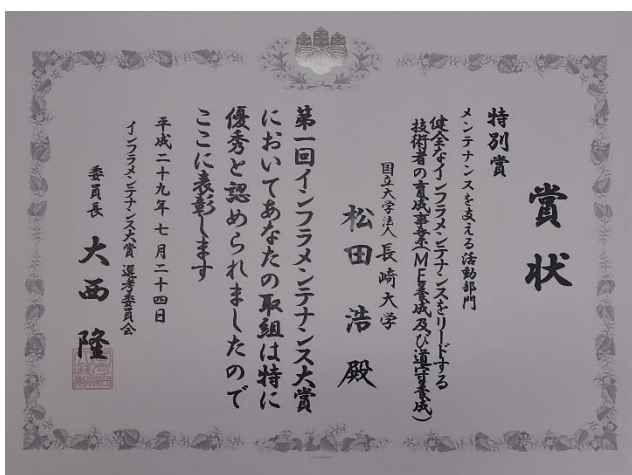 賞状
特別賞
メンテナンスを支える活動部門
健全なインフラメンテナンスをリードする
技術者の育成事業(ME養成及び道守養成)
国立大学法人 長崎大学
松田 浩 殿
第一回インフラメンテナンス大賞
においてあなたの取組は特に
優秀と認められましたので
ここに表彰します
平成二十九年七月二十四日
インフラメンテナンス大賞 選考委員会
委員長 大西 隆